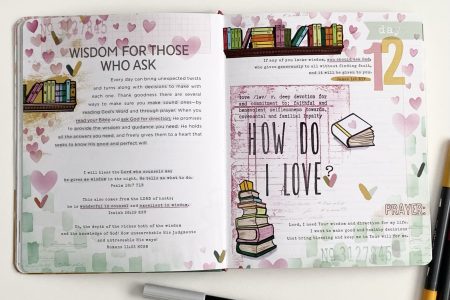 WISDOM FOR THOSE
WHO ASK
Every day can bring unexpected twists
and turns along with decisions to make with
each one. Thank goodness there are several
ways to make sure you make sound ones—by
reading God's Word and through prayer. When you
read your Bible and ask God for direction, He promises
to provide the wisdom and guidance you need. He holds
all the answers you need, and freely gives them to a heart that
seeks to know His good and perfect will.
I will bless the Lord who counsels me;
he gives me wisdom in the night. He tells me what to do.
Psalm 16:7 TLB
This also comes from the LORD of hosts;
he is wonderful in counsel and excellent in wisdom.
Isaiah 28:29 ESV
Oh, the depth of the riches both of the wisdom
and the knowledge of God! How unsearchable His judgments
and untraceable His ways!
Romans 11:33 HCSB
day
12
If any of you lacks wisdom, you should ask God,
who gives generously to all without finding fault,
and it will be given to you.
love /ləv/ n. deep devotion for
and commitment to; faithful and
benevolent selflessness towards,
covenantal and familial loyalty
HOW DO
I LOVE?
PRAYER:
Lord, I need Your wisdom and direction for my life.
I want to make good and healthy decisions
that bring blessing and keep me in Your will for me.
No 3127845